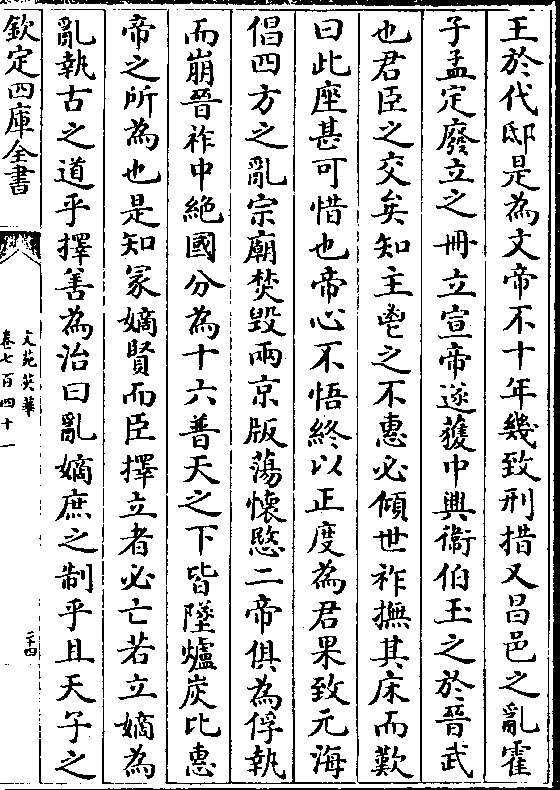 王於代邸是為文帝不十年幾致刑措又昌邑之亂霍
子孟定廢立之冊立宣帝遂獲中興衞伯玉之於晉武
也君臣之交矣知主鬯之不惠必傾世祚撫其床而歎
曰此座甚可惜也帝心不悟終以正度為君果致元海
倡四方之亂宗廟焚毀兩京版蕩懷愍二帝俱為俘執
而崩晉祚中絶國分為十六普天之下皆墜爐炭比惠
帝之所為也是知冢嫡賢而臣擇立者必亡若立嫡為
亂執古之道乎擇善為治曰亂嫡庶之制乎且天子之
欽定四庫全書
文苑英華
卷七百四十一
二十四